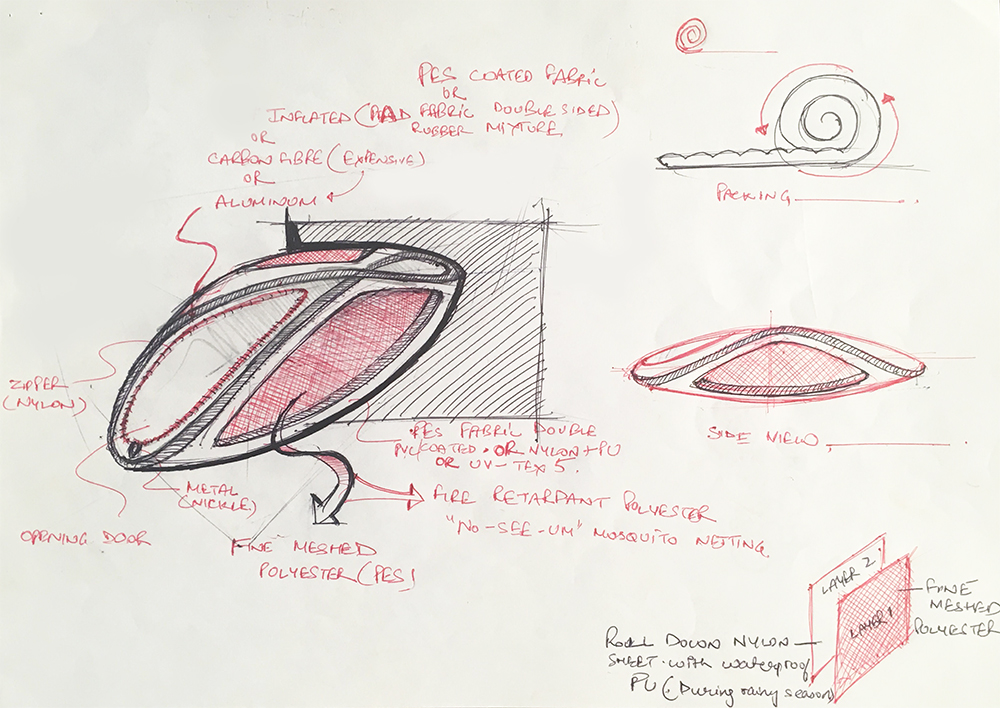 PES COATED FABRIC
OR
INFLATED (PAD FABRIC DOUBLE SIDED)
RUBBER MIXTURE
OR
CARBON FIBRE (EXPENSIVE)
OR
ALUMINUM
PACKING
ZIPPER
(NYLON)
SIDE VIEW
PES FABRIC DOUBLE
COATED. OR NYLON + PU
OR UV-TEX 5.
METAL
(NICKLE)
FIRE RETARDANT POLYESTER
"NO-SEE-UM" MOSQUITO NETTING
OPENING DOOR
FINE MESHED
POLYESTER (PES)
LAYER 2
LAYER 1
FINE
MESHED
POLYESTER
ROLL DOWN NYLON
SHEET. with waterproof
PU (During rainy season)